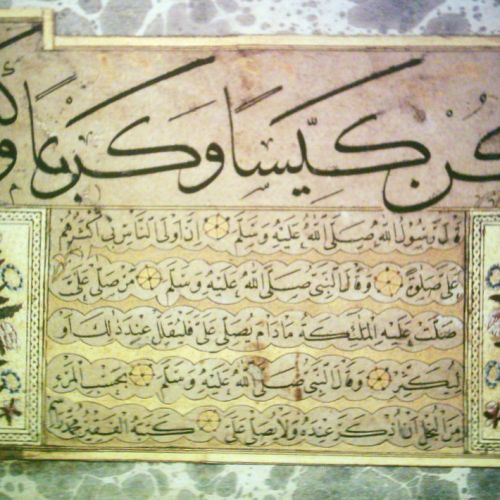 كُنْ كَيِّسًا وَكَرِيمًا
قَالَ رَسُولُ اللهِ صَلَّى اللهُ عَلَيْهِ وَسَلَّمَ اِنَّ اَوْلَى النَّاسِ بِي اَكْثَرُهُمْ
عَلَيَّ صَلٰوةً وَقَالَ النَّبِيُّ صَلَّى اللهُ عَلَيْهِ وَسَلَّمَ مَنْ صَلَّى عَلَيَّ
صَلَّتْ عَلَيْهِ الْمَلٰئِكَةُ مَادَامَ يُصَلِّى عَلَيَّ فَلْيُقَلِّلْ عِنْدَ ذٰلِكَ اَوْ
لِيُكَثِّرْ وَقَالَ النَّبِيُّ صَلَّى اللهُ عَلَيْهِ وَسَلَّمَ بِحَسْبِ الْمَرْءِ
مِنَ الْبُخْلِ اَنْ اُذْكَرَ عِنْدَهُ وَلَا يُصَلِّى عَلَيَّ كَتَبَهُ الْفَقِيرُ مُحَمَّد